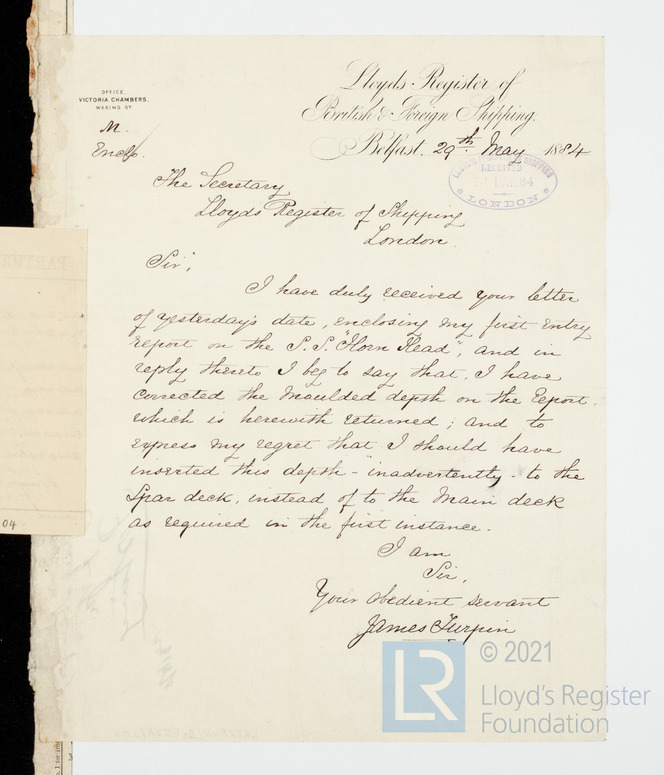 OFFICE,
VICTORIA CHAMBERS,
WARING ST.
Lloyds Register of
British & Foreign Shipping.
Belfast, 29th May 1884
M.
Enclo.
RECEIVED
84
LONDON
The Secretary
Lloyds Register of Shipping
London.
Sir,
I have duly received your letter
of yesterday's date, enclosing my first entry
report on the S.S. "Horn Head", and in
reply thereto I beg to say that, I have
corrected the moulded depth on the report,
which is herewith returned; and to
express my regret that I should have
inserted this depth - inadvertently - to the
Spar deck, instead of to the Main deck
as required in the first instance.
I am
Sir,
Your obedient servant
James Turpin
04
LR
© 2021
Lloyd's Register
Foundation